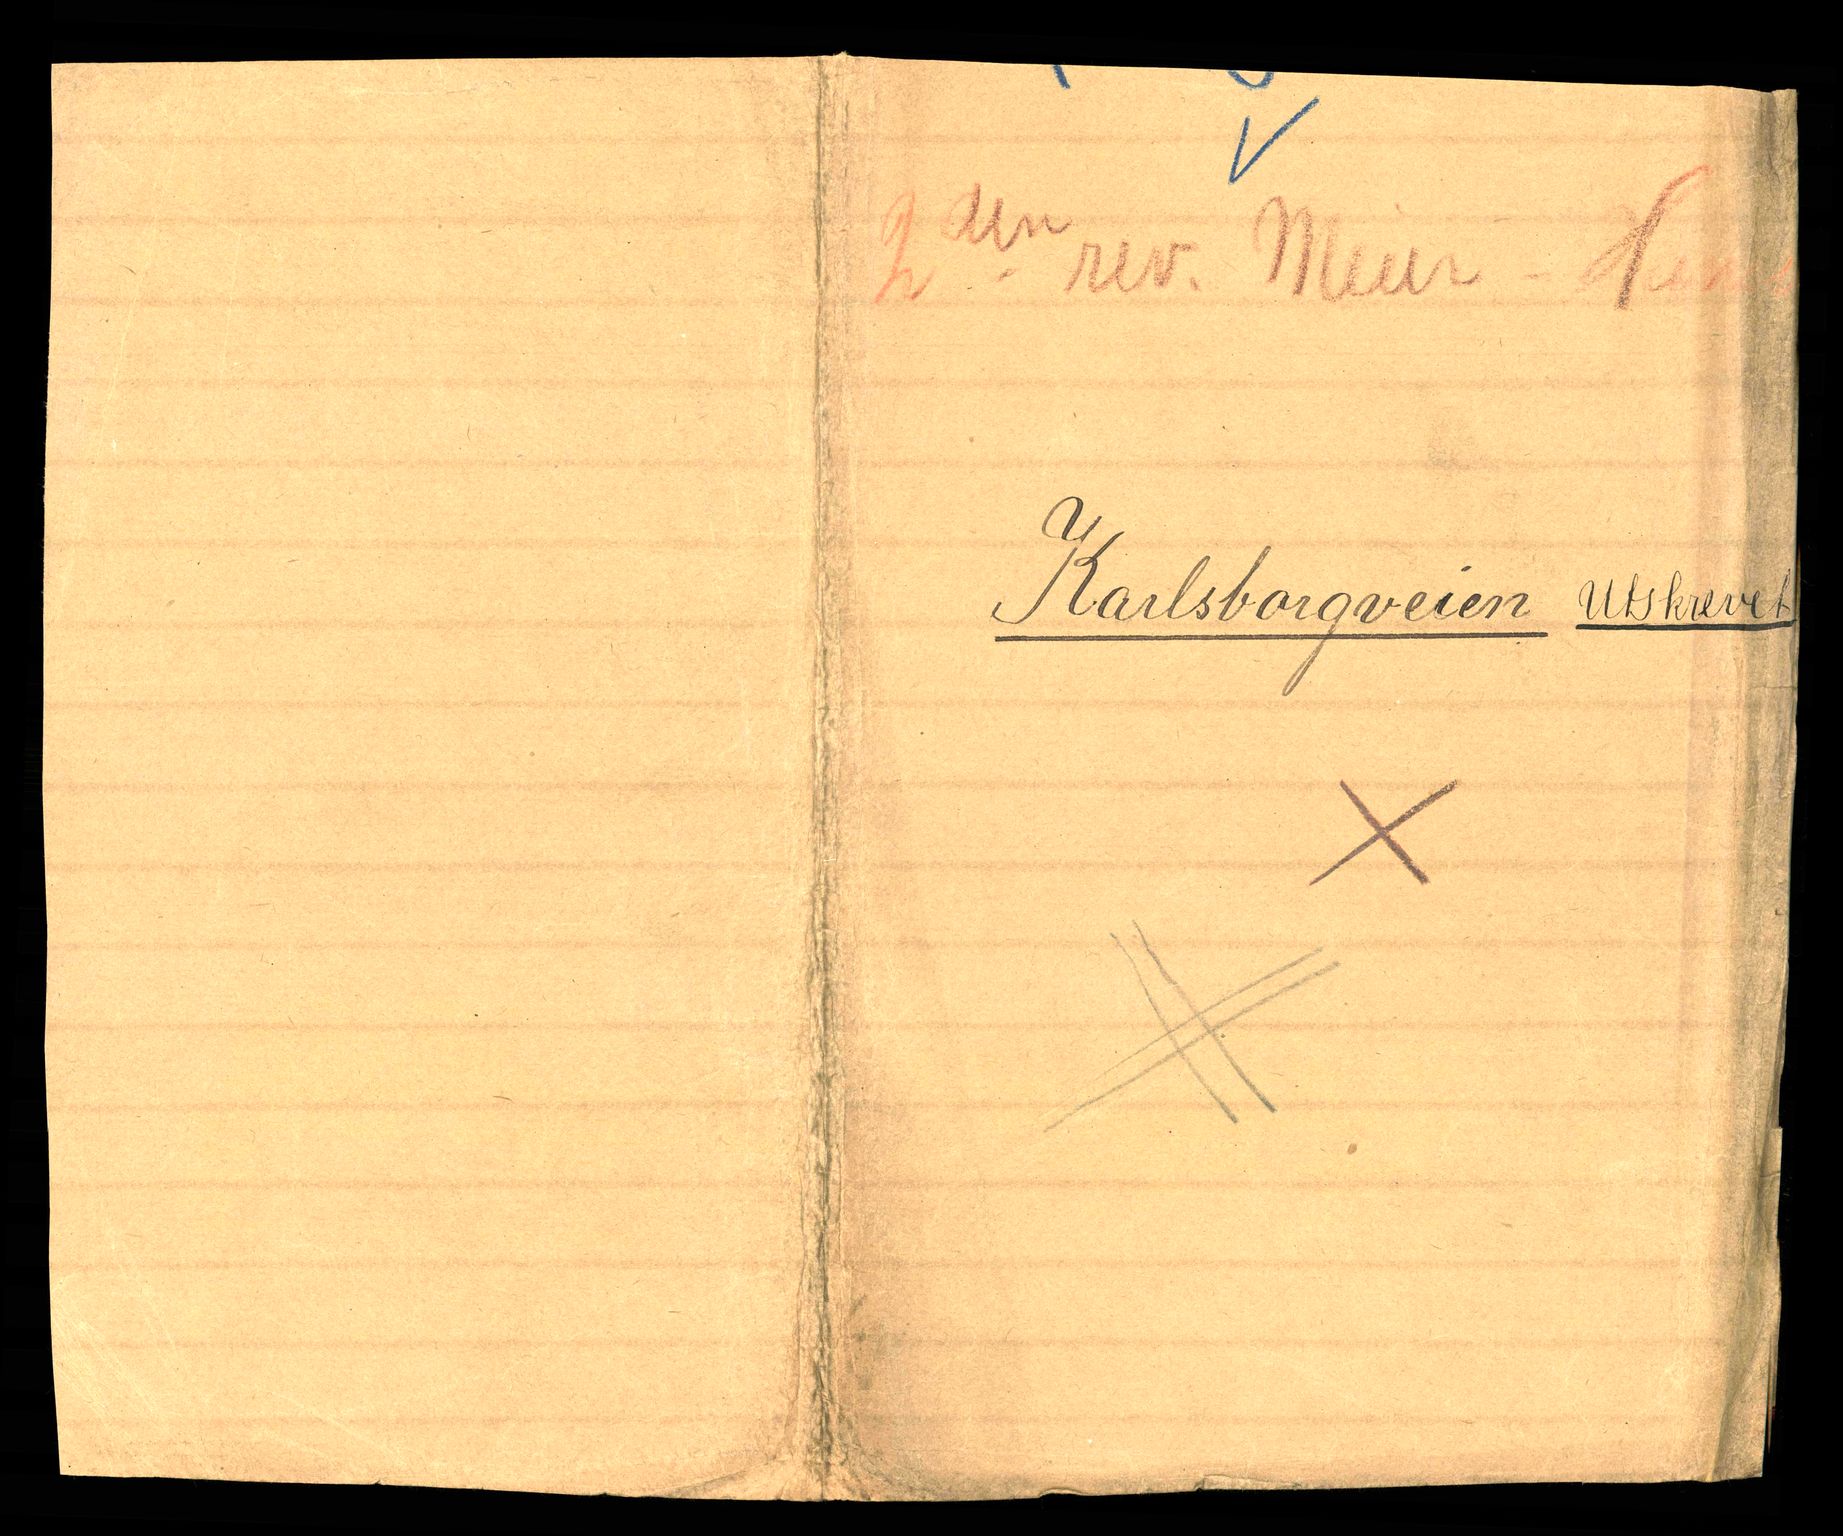 2den rev. Meier -
Karlsborgveien Utskrevet